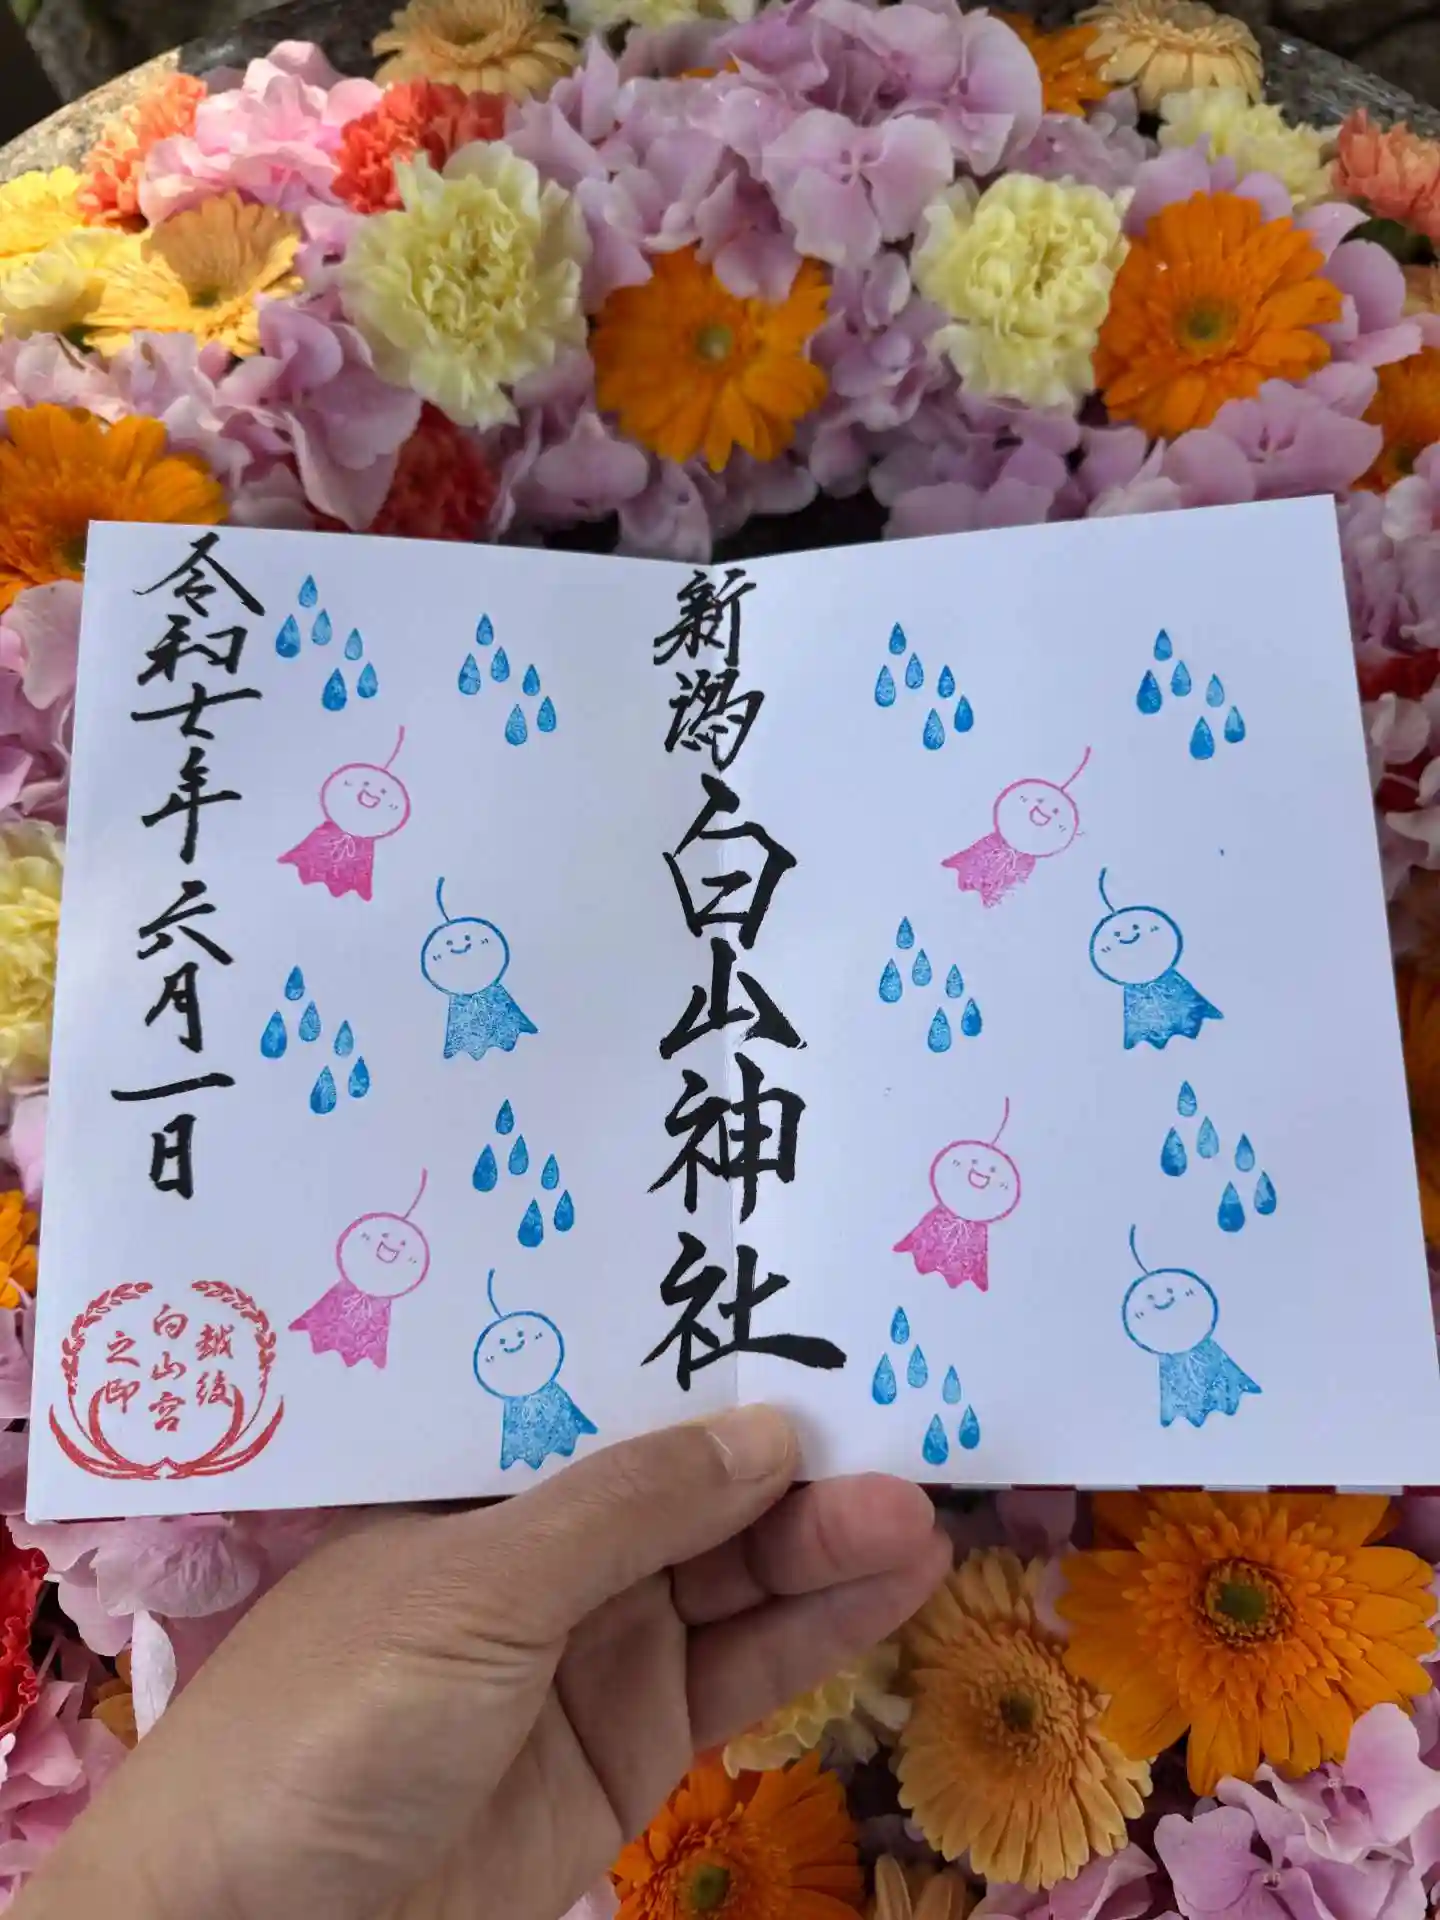 新潟白山神社
令和七年六月一日
越後
白山宮
之印